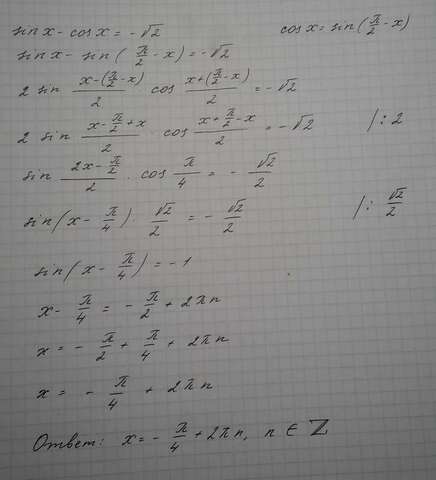 sin x - cos x = -√2        cos x = sin(π/2 - x)
sin x - sin(π/2 - x) = -√2
2 sin (x-(π/2-x))/2 cos (x+(π/2-x))/2 = -√2
2 sin (x-π/2+x)/2 · cos (x+π/2-x)/2 = -√2    /:2
sin (2x-π/2)/2 · cos π/4 = -√2/2
sin(x - π/4) · √2/2 = -√2/2    /: √2/2
sin(x - π/4) = -1
x - π/4 = -π/2 + 2πn
x = -π/2 + π/4 + 2πn
x = -π/4 + 2πn
Ответ: x = -π/4 + 2πn, n ∈ ℤ